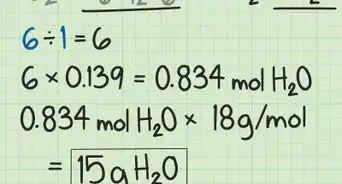 6÷1=6
6 × 0.139 = 0.834 mol H₂O
0.834 mol H₂O × 18g/mol
= 15g H₂O